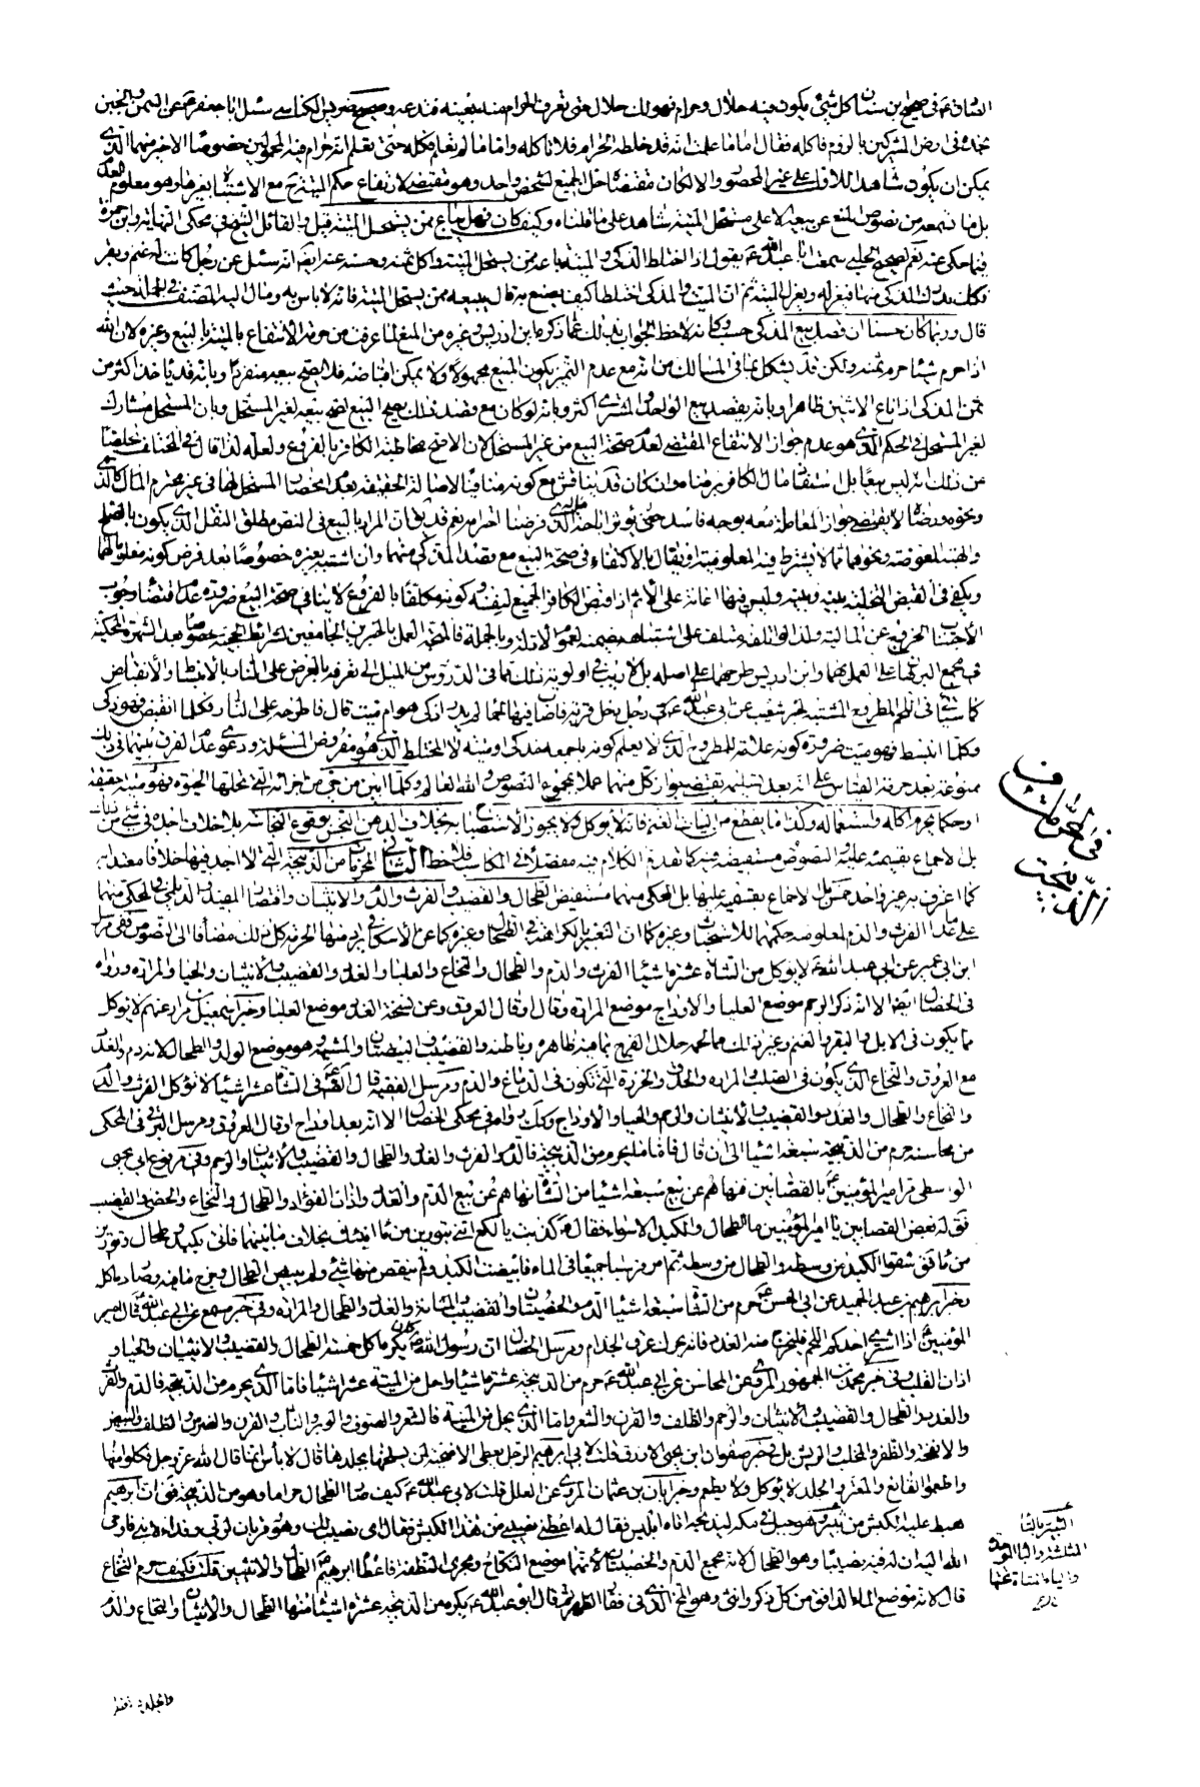 الصادق ع في صحيح ابن سنان كل شئ يكون فيه حلال وحرام فهو لك حلال حتى تعرف الحرام منه بعينه فتدعه وصحيح ضريس الكناسي سئل ابا جعفر ع عن السمن والجبن
نجده في ارض المشركين بالروم فاكله فقال اما ما علمت انه قد خلطه الحرام فلا تاكله واما ما لم تعلم فكله حتى تعلم انه حرام خصوصا الاخير منهما الذي
يمكن ان يكون شاهدا للاول على غير المحصور والا لكان مقتضاه حل الجميع لشخص واحد وهو مقتض لارتفاع حكم الميتة مع الاشتباه وهو معلوم العدم
بل ما تسمعه من نصوص المنع عن بيعه الا على مستحل الميتة شاهد على ما قلناه وكيف كان فهل يباع ممن يستحل الميتة قيل والقائل الشيخ في محكى النهاية وابن حمزة
فيما حكى عنه نعم لصحيح الحلبي سمعت ابا عبد الله ع يقول اذا اختلط الذكى والميتة باعه ممن يستحل الميتة واكل ثمنه وحسنه عنه ايضا انه سئل عن رجل كانت له غنم وبقر
وكان يدرك الذكى منها فيعزله ويعزل الميتة ثم ان الميتة والذكى اختلطا كيف يصنع به قال يبيعه ممن يستحل الميتة فانه لا باس به ومال اليه المصنف في الجملة حيث
قال وربما كان حسنا ان قصد بيع المذكى حسب وكانه لاحظ الجواب بذلك عما ذكره ابن ادريس وغيره من المنع لما عرفت من حرمة الانتفاع بالميتة بالبيع وغيره لان الله
اذا حرم شيئا حرم ثمنه ولكن قد يشكل بما في المسالك من انه مع عدم التميز يكون المبيع مجهولا ولا يمكن اقباضه فلا يصح بيعه منفردا وبانه قد ياخذ اكثر من
ثمن المذكى اذا باع الاثنين ظاهرا وبانه يقصد بيع الواحد والمشترى اكثر وبانه لو كان مع قصد ذلك يصح البيع لصح بيعه لغير المستحل وبان المستحل مشارك
لغير المستحل في الحكم الذي هو عدم جواز الانتفاع المقتضي لعدم صحة البيع من غير المستحل لان الاصح مخاطبة الكافر بالفروع ولعله لذا قال في المختلف تخلصا
من ذلك انه ليس بيعا بل استنقاذ مال الكافر برضاه وان كان قد يناقش مع كونه منافيا لاصالة الحقيقة بعدم انحصار المستحل لها في غير محترم المال كالذمي
ونحوه ورضاه لا يقتضي جواز المعاملة معه بوجه فاسد حتى يؤثر اباحة ماله الذي فرضناه احترامه نعم قد يقال ان المراد بالبيع في النص مطلق النقل الذي يكون بالصلح
والهبة المعوضة ونحوهما مما لا يشترط فيه المعلومية او يقال بالاكتفاء في صحة البيع مع قصد المذكى منهما وان اشتبه بغيره خصوصا بعد فرض كونه معلوما لهما
ويكفى في القبض التخلية بينه وبينه وليس فيها اعانة على الاثم اذ قبض الكافر الجميع لنفسه وكونه مكلفا بالفروع لا ينافي صحة البيع ضرورة عدم اقتضاء وجوب
الاجتناب الخروج عن المالية ولذا لو اتلفه متلف على اشتباهه ضمنه لعموم الادلة وبالجملة فالمتجه العمل بالخبرين الجامعين لشرائط الحجية خصوصا بعد الشهرة المحكية
في مجمع البرهان على العمل بهما وابن ادريس طرحهما على اصله بل لا ريب في اولوية ذلك مما في الدروس من الميل الى تعرفه بالعرض على النار بالانبساط والانقباض
كما سياتي في اللحم المطروح المشتبه لخبر شعيب عن ابي عبد الله ع في رجل دخل قرية فاصاب فيها لحما لم يدر اذكى هو ام ميت قال فاطرحه على النار فكلما انقبض فهو ذكى
وكلما انبسط فهو ميت ضرورة كونه علامة للمطروح الذي لا يعلم كونه باجمعه مذكى او ميتة لا المختلط الذي هو مفروض المسئلة ودعوى عدم الفرق بينهما في ذلك
ممنوعة بعد حرمة القياس على انه بعد تسليمه تقتضي جواز كل منهما عملا بمجموع النصوص والله العالم وكلما ابين من حي من اجزائه التي تحلها الحيوة فهو ميتة حقيقة
او حكما يحرم اكله واستعماله وكذا ما يقطع من اليات الغنم فانه لا يؤكل ولا يجوز الاستصباح به بخلاف الدهن النجس بوقوع النجاسة بلا خلاف اجده في شئ من ذلك
بل الاجماع بقسميه عليه والنصوص مستفيضة فيه كما تقدم الكلام فيه مفصلا في المكاسب فلاحظ الثاني المحرمات من الذبيحة التي لا اجد فيها خلافا معتدا به
كما اعترف به غير واحد خمس بل الاجماع بقسميه عليها بل المحكى منهما مستفيض الطحال والقضيب والفرث والدم والانثيان واقتصار المفيد والديلمي في المحكى عنهما
على ما عدا الفرث والدم لمعلومية حكمهما للاستخباث وغيره كما ان التعبير بالكراهة في الطحال وغيره كما عن الاسكافي يريد منها الحرمة كل ذلك مضافا الى النصوص ففى مرسل
ابن ابي عمير عن ابي عبد الله ع لا يؤكل من الشاة عشرة اشياء الفرث والدم والطحال والنخاع والعلباء والغدد والقضيب والانثيان والحياء والمرارة ورواه
في الخصال ايضا الا انه ذكر الرحم موضع العلباء والاوداج موضع المرارة وقال او قال العروق وعن نسخة الغدد موضع العلباء وخبر اسمعيل بن مرار عنهم لا يؤكل
مما يكون في الابل والبقر والغنم وغير ذلك مما لحمه حلال الفرج بما فيه ظاهره وباطنه والقضيب والبيضتان والمشيمة وهو موضع الولد والطحال لانه دم والغدد
مع العروق والنخاع الذي يكون في الصلب والمرارة والحدق والخرزة التي تكون في الدماغ والدم ومرسل الفقيه قال الصادق ع في الشاة عشرة اشياء لا تؤكل الفرث والدم
والنخاع والطحال والغدد والقضيب والانثيان والرحم والحياء والاوداج وكذلك رواه في محكى الخصال الا انه بعد اوداج او قال العروق ومرسل البرقي في المحكى
من محاسنه حرم من الذبيحة سبعة اشياء الى ان قال فاما ما يحرم من الذبيحة فالدم والفرث والغدد والطحال والقضيب والانثيان والرحم وفي مرفوع ابي يحيى
الواسطي مر امير المؤمنين ع بالقصابين فنهاهم عن بيع سبعة اشياء من الشاة نهاهم عن بيع الدم والغدد واذان الفؤاد والطحال والنخاع والخصى والقضيب
فقال له بعض القصابين يا امير المؤمنين ما الطحال والكبد الا سواء فقال له كذبت يا لكع ائتني بتورين من ماء انبئك بخلاف ما بينهما فاتى بكبد وطحال وتورين
من ماء فقال شقوا الكبد من وسطه والطحال من وسطه ثم امر فمرسا جميعا في الماء فابيضت الكبد ولم ينقص منها شئ ولم يبيض الطحال وخرج ما فيه وصار دما كله
وخبر ابراهيم بن عبد الحميد عن ابي الحسن ع حرم من الشاة سبعة اشياء الدم والخصيتان والقضيب والمثانة والغدد والطحال والمرارة وفي خبر مسمع عن ابي عبد الله ع قال امير
المؤمنين ع اذا اشترى احدكم اللحم فليخرج منه الغدد فانه يحرك عرق الجذام ومرسل الخصال ان رسول الله ص كان يكره ما كل خمسة الطحال والقضيب والانثيان والحياء و
اذان القلب وفي خبر محمد بن الجمهور المروي عن المحاسن عن ابي عبد الله ع حرم من الذبيحة عشرة اشياء واحل من الميتة عشرة اشياء فاما الذي يحرم من الذبيحة فالدم والفرث
والغدد والطحال والقضيب والانثيان والرحم والظلف والقرن والشعر واما الذي يحل من الميتة فالشعر والصوف والوبر والناب والقرن والضرس والظلف والبيض
والانفحة والظفر والمخلب والريش بل في خبر صفوان ابن يحيى الازرق قلت لابي ابراهيم الرجل يعطى الاضحية لمن يسلخها بجلدها قال لا بأس انما قال الله عز وجل فكلوا منها
واطعموا القانع والمعتر والجلد لا يؤكل ولا يطعم وخبر ابان بن عثمان المروي عن العلل قلت لابي عبد الله ع كيف صار الطحال حراما وهو من الذبيحة فقال ان ابرهيم
هبط عليه الكبش من ثبير وهو جبل في مكة ليذبحه اتاه ابليس فقال له اعطني نصيبي من هذا الكبش فقال اى نصيب لك وهو قربان لربي وفداء لابني فاوحى
الله اليه ان له فيه نصيبا وهو الطحال لانه مجمع الدم والخصيتان لانهما موضع النكاح ومجرى النطفة فاعطاه ابرهيم الطحال والانثيين قلت فكيف حرم النخاع
قال لانه موضع الماء الدافق من كل ذكر وانثى وهو المخ الذي في فقار الظهر ثم قال ابو عبد الله ع يكره من الذبيحة عشرة اشياء منها الطحال والانثيان والنخاع والدم
في المحرمات من
الذبيحة
الثبير بالثاء
المثلثة والباء الموحدة
والياء المثناة تحتها
والجلد